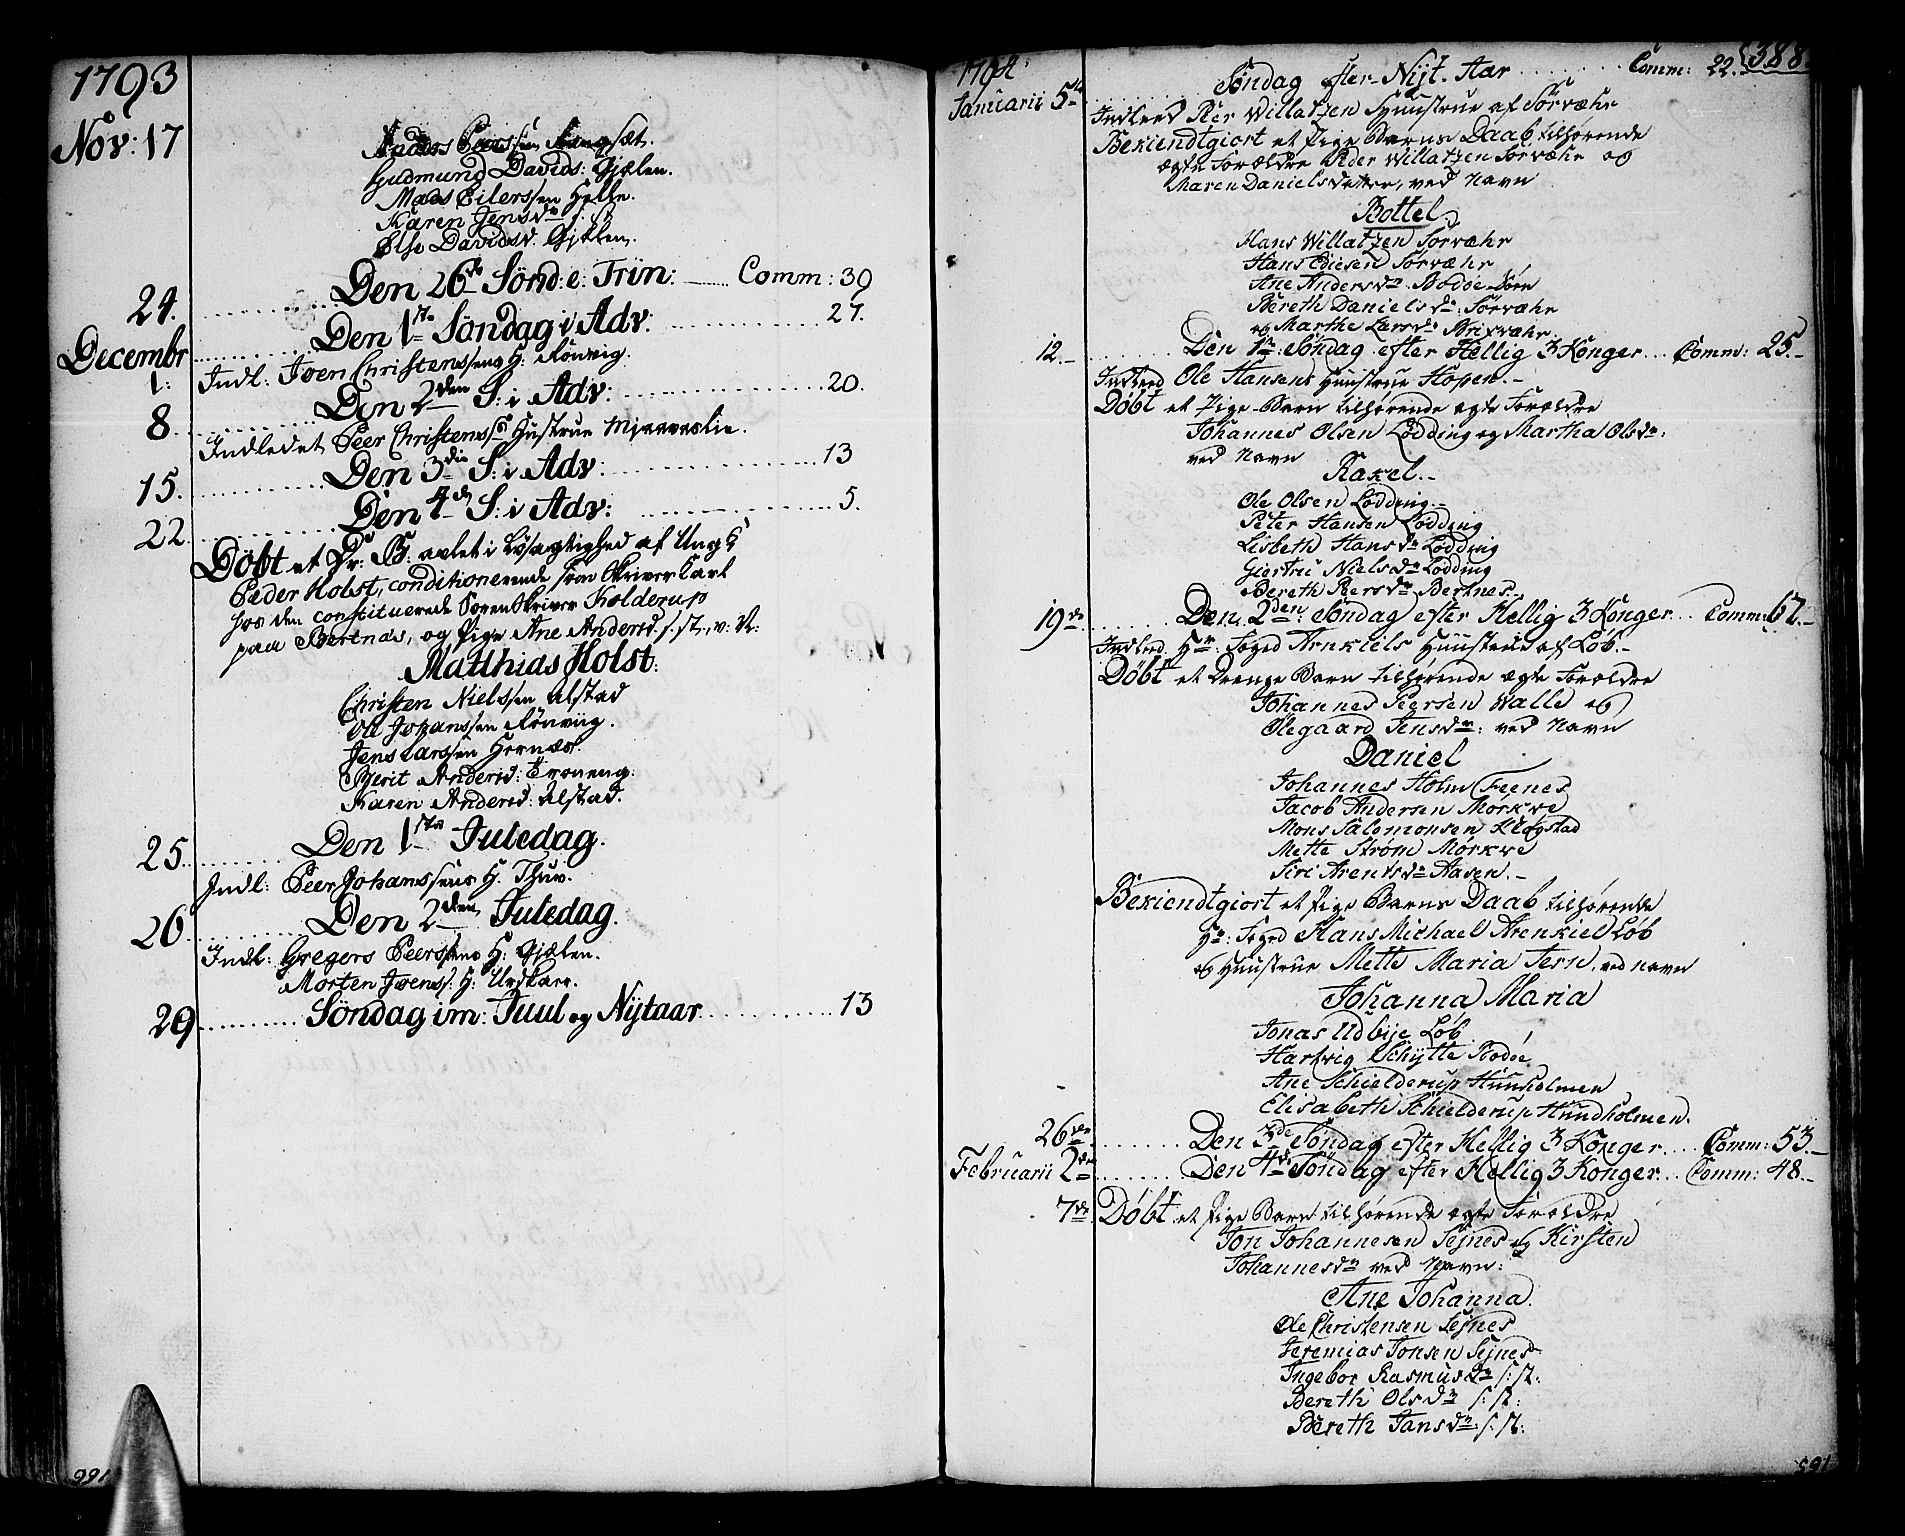 1793
Nov: 17
Gudmund Davids: Gjælen.
Mads Eilerssen Helle.
Karen Jensdr s. st.
Else Davidsd. Gjælen.
24. Den 26de Sönd: e: Trin: Comm: 39
Decembr 1: Den 1ste Söndag i Adv: 27.
Indl: Joen Christenssens H: Rönvig.
8. Den 2den S: i Adv: 20.
Indledet Peer Christenss: Hustrue
15. Den 3die S: i Adv: 13
22 Den 4de S: i Adv: 5.
Döbt et Dr: B. avlet i Løsagtighed af Ung K
Peder Holst, conditionerende som Skriver Karl
hos den constituerede Sorenskriver Kolderup
paa Bertnæs, og Pige Ane Andersd. s. st., v: N:
Matthias Holst.
Christen Nielssen Alstad
Ole Johanssen Rönviig.
Jens Larssen Hernæs.
Berit Andersd: Troneng.
Karen Andersd: Alstad.
25. Den 1ste Juledag.
Indl: Peer Johanssens H. Thuv.
26. Den 2den Juledag.
Indl: Gregers Peerssens H: Gjælen.
Morten Joens: H: Urdkarr.
29 Söndag im: Juul og Nytaar 13
166
1794 388
Januarii 5te Søndag efter Nÿt. Aar Comm: 22.
Indleed Peer Willatzen Huustrue af Sörvæhr
Bekiendtgiort et Pige Barns Daab, tilhørende
ægte Forældre Peder Willatzen Sorvæhr og
Maren Danielsdatter, ved Navn
Bottel.
Hans Willatzen Sorvæhr
Hans Ediesen Sorvæhr
Ane Andersdr Bodøe-Siøn
Bereth Danielsdr: Sorvæhr
og Marthe Larsdr Brixvæhr.
12. Den 1te Søndag efter Hellig 3 Konger Comm: 25.
Indleed Ole Hansens Huustrue Hopen.
Døbt et Pige-Barn tilhørende ægte Forældre
Johannes Olsen Lødding og Martha Olsdr:
ved Navn
Rakel.
Ole Olsen Lødding.
Peter Hansen Lødding
Lisbeth Hansdr Lødding
Giertru Nielsdr Lødding
Bereth Peersdr Bertnes.
19de Den 2den Søndag efter Hellig 3 Konger Comm: 67.
Indleed Hr: Foged Arnkiels Huustrue af Løb.
Døbt et Drenge Barn tilhørende ægte Forældre
Johannes Peersen Walle og
Olegaard Jensdr: ved Navn
Daniel
Johannes Holm Feenes
Jacob Andersen Mørkve
Mons Salomonsen Kløgstad
Mette Strøm Mørkve
Siri Arentsdr Aasen.
Bekiendtgiort et Pige Barns Daab tilhørende
Hr: Foged Hans Michael Arenkiel Løb
og Huustrue Mette Maria Jern, ved Navn
Johanna Maria
Jonas Udbÿe Løb
Hartvig Schÿtte Bodøe
Ane Schielderup Hundholmen
Elisabeth Schielderup Hundholmen.
26de Den 3de Søndag efter Hellig 3 Konger Comm: 53
Februarii 2den Den 4de Søndag efter Hellig 3 Konger Comm: 48.
7de Døbt et Pige Barn tilhørende ægte Forældre
Jon Johannesen Sejnes og Kirsten
Johannesdr ved Navn:
Ane Johanna.
Ole Christensen Sejnes
Jeremias Jonsen Sejnes
Ingebor Rasmusdr s: st:
Bereth Olsdr s: st:
Bereth Jansdr: s: st: